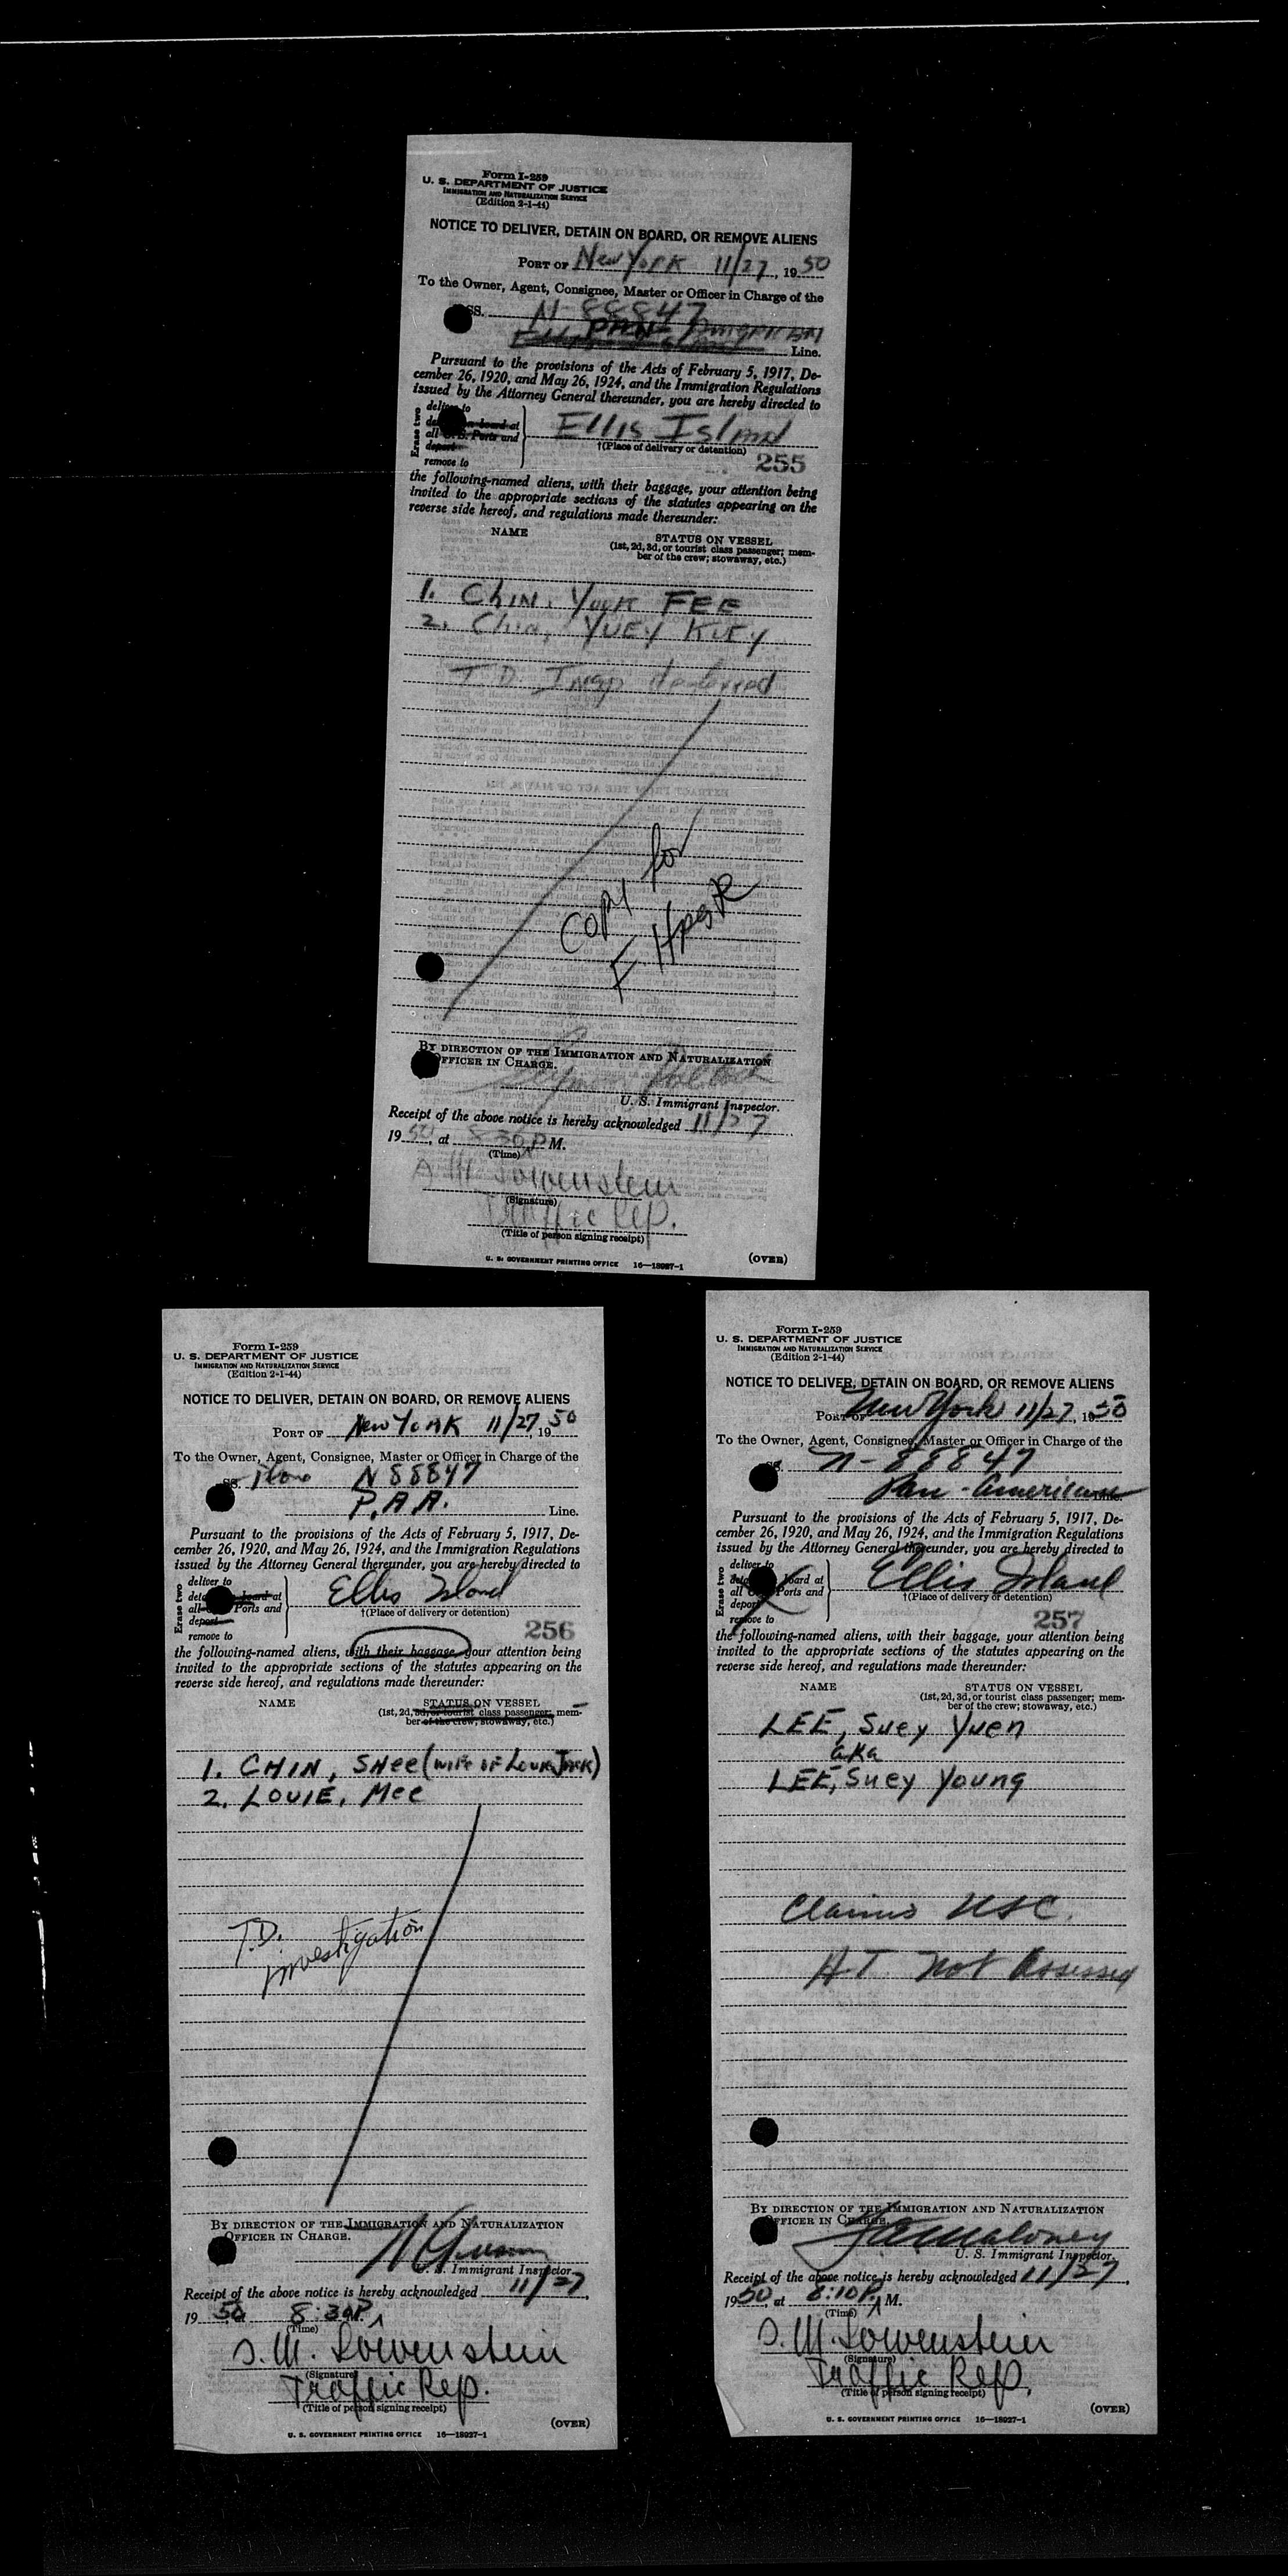 Form I-259
U. S. DEPARTMENT OF JUSTICE
IMMIGRATION AND NATURALIZATION SERVICE
(Edition 2-1-44)
NOTICE TO DELIVER, DETAIN ON BOARD, OR REMOVE ALIENS
PORT OF New York 11/27, 19 50
To the Owner, Agent, Consignee, Master or Officer in Charge of the
SS. N-88847
PAN American
Line.
Pursuant to the provisions of the Acts of February 5, 1917, De-
cember 26, 1920, and May 26, 1924, and the Immigration Regulations
issued by the Attorney General thereunder, you are hereby directed to
Erase two
deliver to
board at
all Ports and
deport
remove to
Ellis Island
†(Place of delivery or detention)
255
the following-named aliens, with their baggage, your attention being
invited to the appropriate sections of the statutes appearing on the
reverse side hereof, and regulations made thereunder:
NAME STATUS ON VESSEL
(1st, 2d, 3d, or tourist class passenger; mem-
ber of the crew; stowaway, etc.)
1. Chin, Yook FEE
2. Chin, YUEY KUEY
T.D. Insp deferred
Copy for
F.
BY DIRECTION OF THE IMMIGRATION AND NATURALIZATION
OFFICER IN CHARGE.
Seymour Pollock
U. S. Immigrant Inspector.
Receipt of the above notice is hereby acknowledged 11/27
19 50, at 8:30 P M.
(Time)
S. M. Lowenstein
(Signature)
Traffic Rep.
(Title of person signing receipt)
U. S. GOVERNMENT PRINTING OFFICE 16—18027-1
(OVER)
Form I-259
U. S. DEPARTMENT OF JUSTICE
IMMIGRATION AND NATURALIZATION SERVICE
(Edition 2-1-44)
NOTICE TO DELIVER, DETAIN ON BOARD, OR REMOVE ALIENS
PORT OF New York 11/27, 19 50
To the Owner, Agent, Consignee, Master or Officer in Charge of the
SS. Plane N 88847
P.A.A. Line.
Pursuant to the provisions of the Acts of February 5, 1917, De-
cember 26, 1920, and May 26, 1924, and the Immigration Regulations
issued by the Attorney General thereunder, you are hereby directed to
Erase two
deliver to
board at
all Ports and
deport
remove to
Ellis Island
†(Place of delivery or detention)
256
the following-named aliens, with their baggage, your attention being
invited to the appropriate sections of the statutes appearing on the
reverse side hereof, and regulations made thereunder:
NAME STATUS ON VESSEL
(1st, 2d, 3d, or tourist class passenger; mem-
ber of the crew; stowaway, etc.)
1. CHIN, SHee (wife of Louie Jack)
2. LOUIE, Mee
T.D.
investigation
BY DIRECTION OF THE IMMIGRATION AND NATURALIZATION
OFFICER IN CHARGE.
U. S. Immigrant Inspector.
Receipt of the above notice is hereby acknowledged 11/27,
19 50, at 8:30 P. M.
(Time)
S. M. Lowenstein
(Signature)
Traffic Rep.
(Title of person signing receipt)
(OVER)
U. S. GOVERNMENT PRINTING OFFICE 16—18027-1
Form I-259
U. S. DEPARTMENT OF JUSTICE
IMMIGRATION AND NATURALIZATION SERVICE
(Edition 2-1-44)
NOTICE TO DELIVER, DETAIN ON BOARD, OR REMOVE ALIENS
PORT OF New York 11/27, 19 50
To the Owner, Agent, Consignee, Master or Officer in Charge of the
SS. N-88847
Pan-American Line.
Pursuant to the provisions of the Acts of February 5, 1917, De-
cember 26, 1920, and May 26, 1924, and the Immigration Regulations
issued by the Attorney General thereunder, you are hereby directed to
Erase two
deliver to
board at
all Ports and
deport
remove to
Ellis Island
†(Place of delivery or detention)
257
the following-named aliens, with their baggage, your attention being
invited to the appropriate sections of the statutes appearing on the
reverse side hereof, and regulations made thereunder:
NAME STATUS ON VESSEL
(1st, 2d, 3d, or tourist class passenger; mem-
ber of the crew; stowaway, etc.)
LEE, Suey Yuen
aka
LEE, Suey Young
Claims USC.
HT. Not Assessed
BY DIRECTION OF THE IMMIGRATION AND NATURALIZATION
OFFICER IN CHARGE.
Maloney
U. S. Immigrant Inspector.
Receipt of the above notice is hereby acknowledged 11/27,
19 50, at 8:10 P. M.
(Time)
S. M. Lowenstein
(Signature)
Traffic Rep.
(Title of person signing receipt)
(OVER)
U. S. GOVERNMENT PRINTING OFFICE 16—18027-1